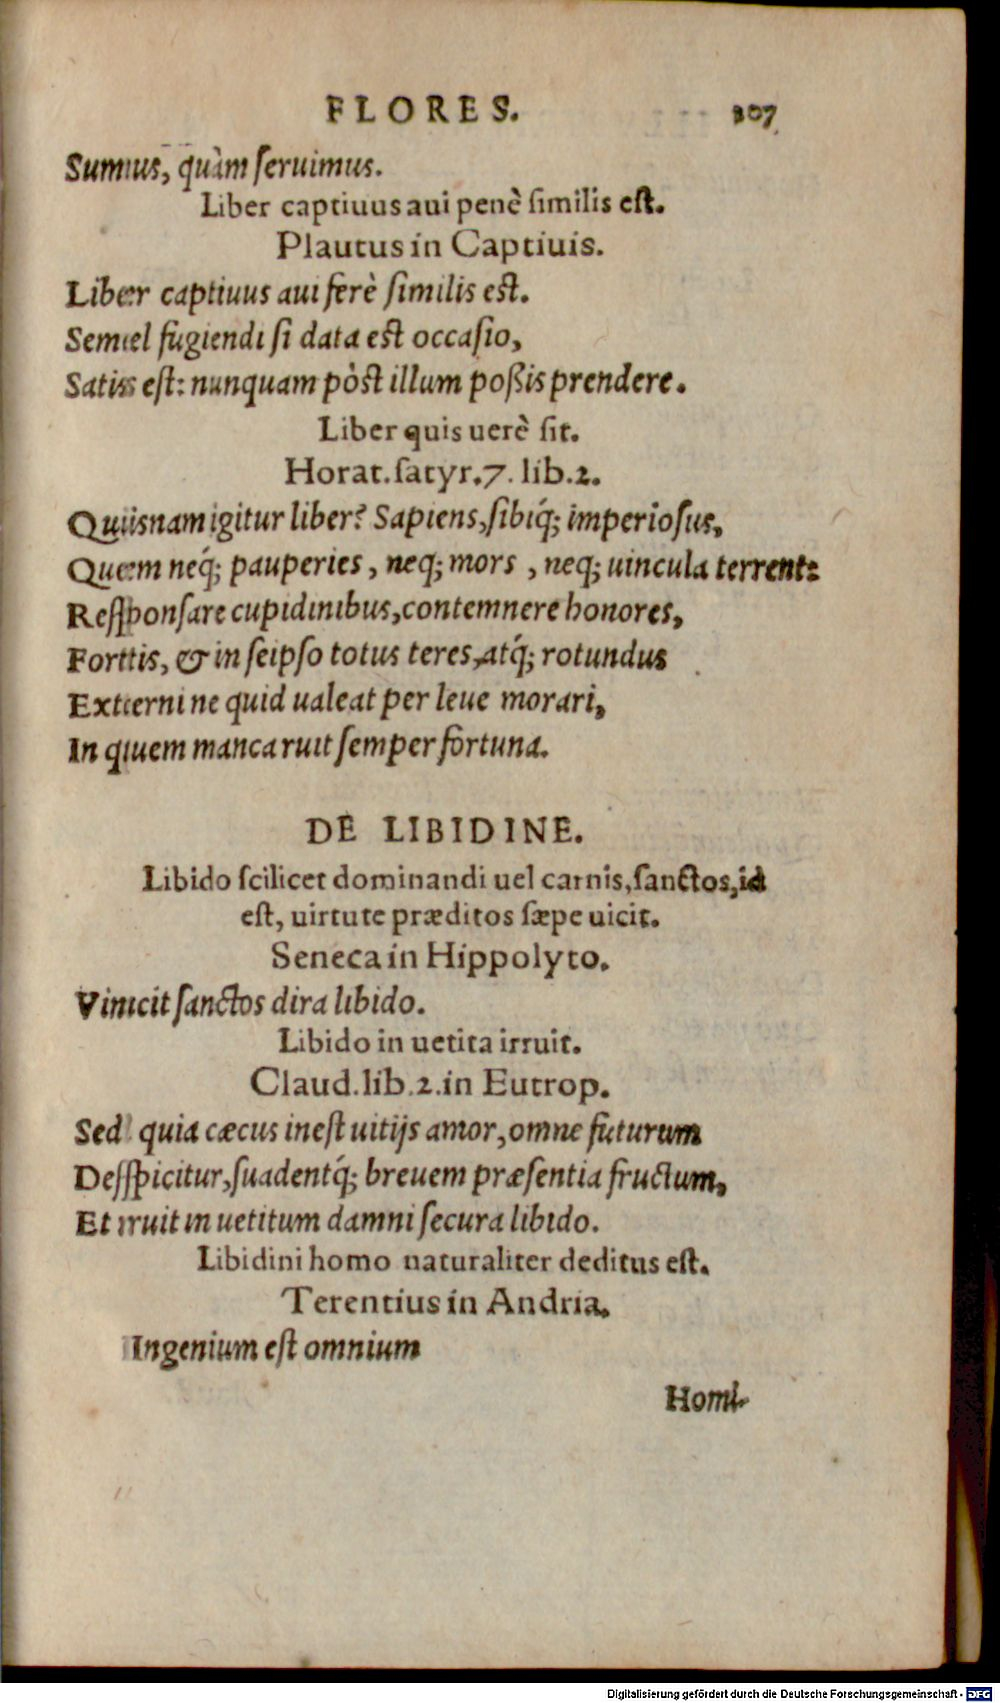 FLORES. 207
Sumus, quàm ſeruimus.
Liber captiuus aui penè ſimilis eſt.
Plautus in Captiuis.
Liber captiuus aui ferè ſimilis eſt.
Semel fugiendi ſi data eſt occaſio,
Satis eſt: nunquam pòſt illum poßis prendere.
Liber quis uerè ſit.
Horat. ſatyr. 7. lib. 2.
Quiſnam igitur liber? Sapiens, ſibiq́; imperioſus,
Quem neq́; pauperies, neq; mors, neq; uincula terrent:
Reſponſare cupidinibus, contemnere honores,
Fortis, & in ſeipſo totus teres, atq́; rotundus
Externi ne quid ualeat per leue morari,
In quem manca ruit ſemper fortuna.
DE LIBIDINE.
Libido ſcilicet dominandi uel carnis, ſanctos, id
eſt, uirtute præditos ſæpe uicit.
Seneca in Hippolyto.
Vincit ſanctos dira libido.
Libido in uetita irruit.
Claud. lib. 2. in Eutrop.
Sed quia cæcus ineſt uitijs amor, omne futurum
Deſpicitur, ſuadentq́; breuem præſentia fructum,
Et ruit in uetitum damni ſecura libido.
Libidini homo naturaliter deditus eſt.
Terentius in Andria.
Ingenium eſt omnium
Homi-
Digitalisierung gefördert durch die Deutsche Forschungsgemeinschaft - DFG